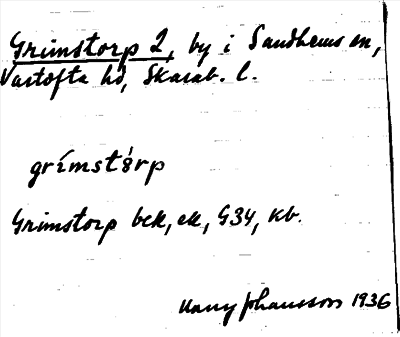 Grimstorp 2, by i Sandhems sn,
Vartofta hd, Skarab. l.
grímstårp
Grimstorp bck, ek, G34, kb.
Harry Johansson 1936